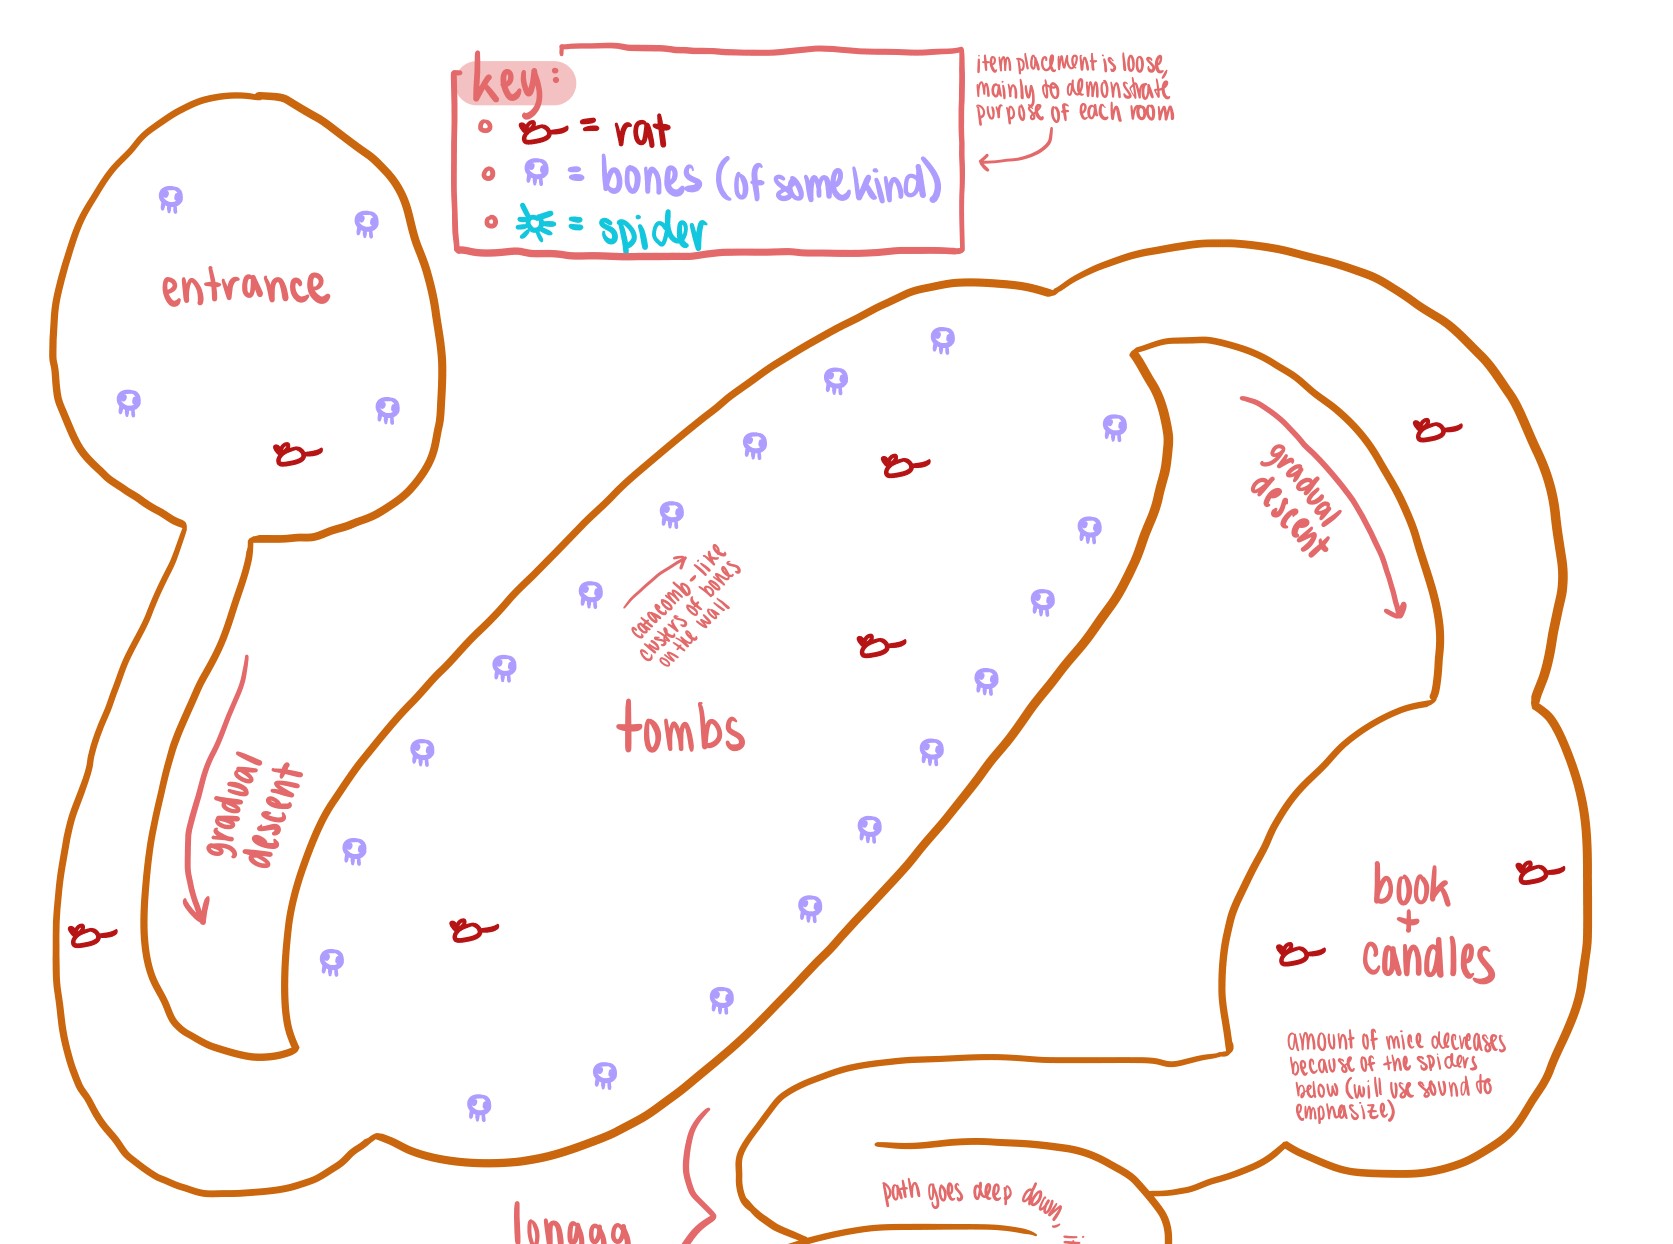 key:
= rat
= bones (of some kind)
= spider
item placement is loose,
mainly to demonstrate
purpose of each room
entrance
gradual
descent
catacomb-like
clusters of bones
on the wall
tombs
gradual
descent
book
+
candles
amount of mice decreases
because of the spiders
below (will use sound to
emphasize)
path goes deep down,
longgg